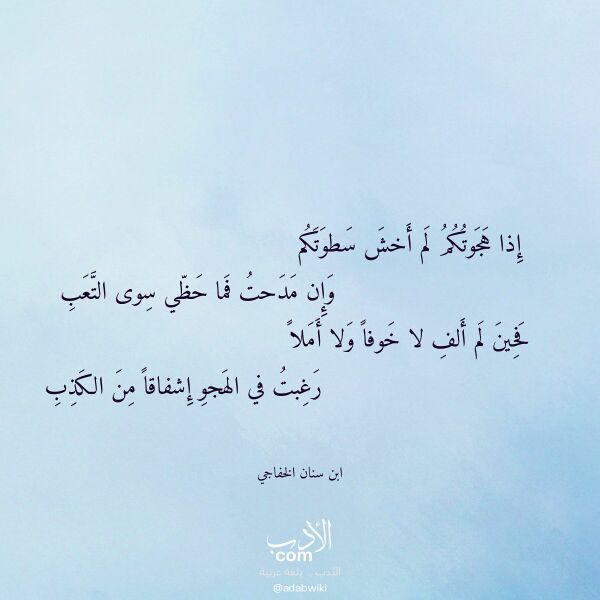 إِذا هَجَوتُكُمُ لَم أَخشَ سَطوَتَكُم
وَإِن مَدَحتُ فَما حَظّي سِوى التَّعَبِ
فَحِينَ لَم أَلفِ لا خَوفاً وَلا أَمَلاً
رَغِبتُ في الهَجوِ إِشفاقاً مِنَ الكَذِبِ
ابن سنان الخفاجي
الأدب
com
الأدب .. بلغة عربية
@adabwiki